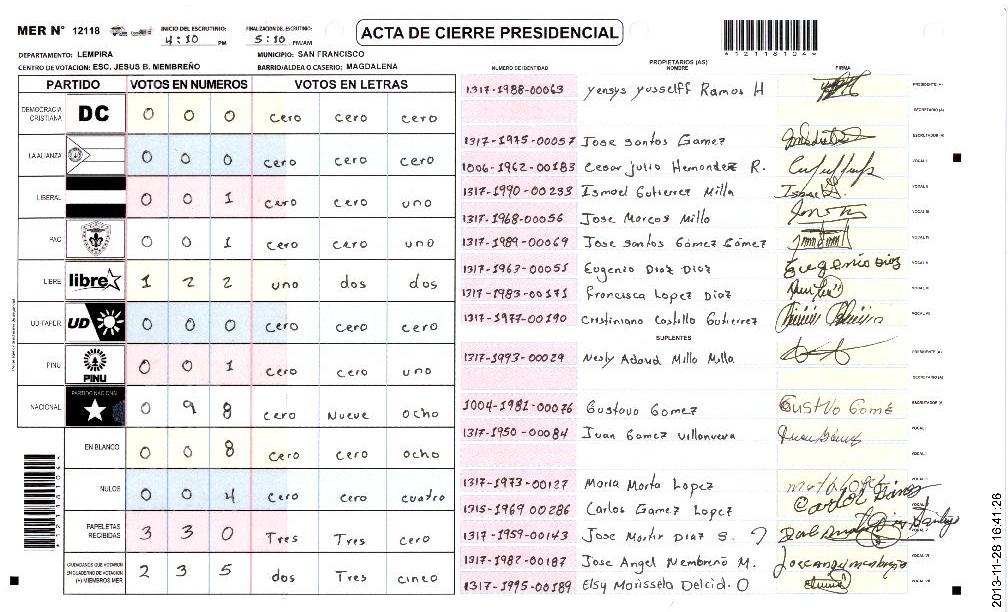 MER N° 12118
INICIO DEL ESCRUTINIO: 4:10 PM
FINALIZACION DEL ESCRUTINIO: 5:10 PM/AM
ACTA DE CIERRE PRESIDENCIAL
DEPARTAMENTO: LEMPIRA
MUNICIPIO: SAN FRANCISCO
CENTRO DE VOTACION: ESC. JESUS B. MEMBREÑO
BARRIO/ALDEA O CASERIO: MAGDALENA
PARTIDO VOTOS EN NUMEROS VOTOS EN LETRAS
DEMOCRACIA CRISTIANA DC 0 0 0 cero cero cero
LA ALIANZA 0 0 0 cero cero cero
LIBERAL 0 0 1 cero cero uno
PAC 0 0 1 cero cero uno
LIBRE libre 1 2 2 uno dos dos
UD-FAPER UD 0 0 0 cero cero cero
PINU PINU 0 0 1 cero cero uno
NACIONAL PARTIDO NACIONAL 0 9 8 cero Nueve ocho
EN BLANCO 0 0 8 cero cero ocho
NULOS 0 0 4 cero cero cuatro
PAPELETAS RECIBIDAS 3 3 0 Tres Tres cero
CIUDADANOS QUE VOTARON EN CUADERNO DE VOTACION (+) MIEMBROS MER 2 3 5 dos Tres cinco
NUMERO DE IDENTIDAD PROPIETARIOS (AS) NOMBRE FIRMA
1317-1988-00063 Yensys Yusselff Ramos H PRESIDENTE (A)
SECRETARIO (A)
1317-1975-00057 Jose santos Gamez ESCRUTADOR (A)
1006-1962-00183 Cesar julio Hernandez R. VOCAL I
1317-1990-00233 Ismael Gutierrez Milla VOCAL II
1317-1968-00056 Jose Marcos Milla VOCAL III
1317-1989-00069 Jose santos Gómez Gómez VOCAL IV
1317-1963-00051 Eugenio Diaz Diaz VOCAL V
1317-1983-00171 Francisca Lopez Diaz VOCAL VI
1317-1977-00190 Cristiniano Castillo Gutierrez VOCAL VII
SUPLENTES
1317-1993-00029 Nesly Adaud Milla Milla PRESIDENTE (A)
SECRETARIO (A)
1004-1981-00076 Gustavo Gomez ESCRUTADOR (A)
1317-1950-00084 Juan Gomez villanueva VOCAL I
VOCAL II
1317-1973-00127 Maria Marta Lopez
1315-1969 00286 Carlos Gamez Lopez
1317-1959-00143 Jose Martir Diaz S.
1317-1982-00187 Jose Angel Membreño M. VOCAL VI
1317-1995-00189 Elsy Marissela Delcid. O VOCAL VII
2013-11-28 16:41:26